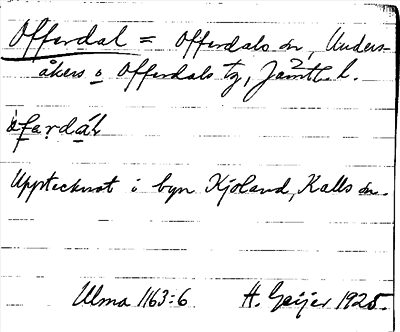 Offerdal = Offerdals sn, Unders-
åkers o Offerdals tg, Jämtl. l.
Upptecknat i byn Kjoland, Kalls sn.
Ulma 1163:6 H. Geijer 1925.